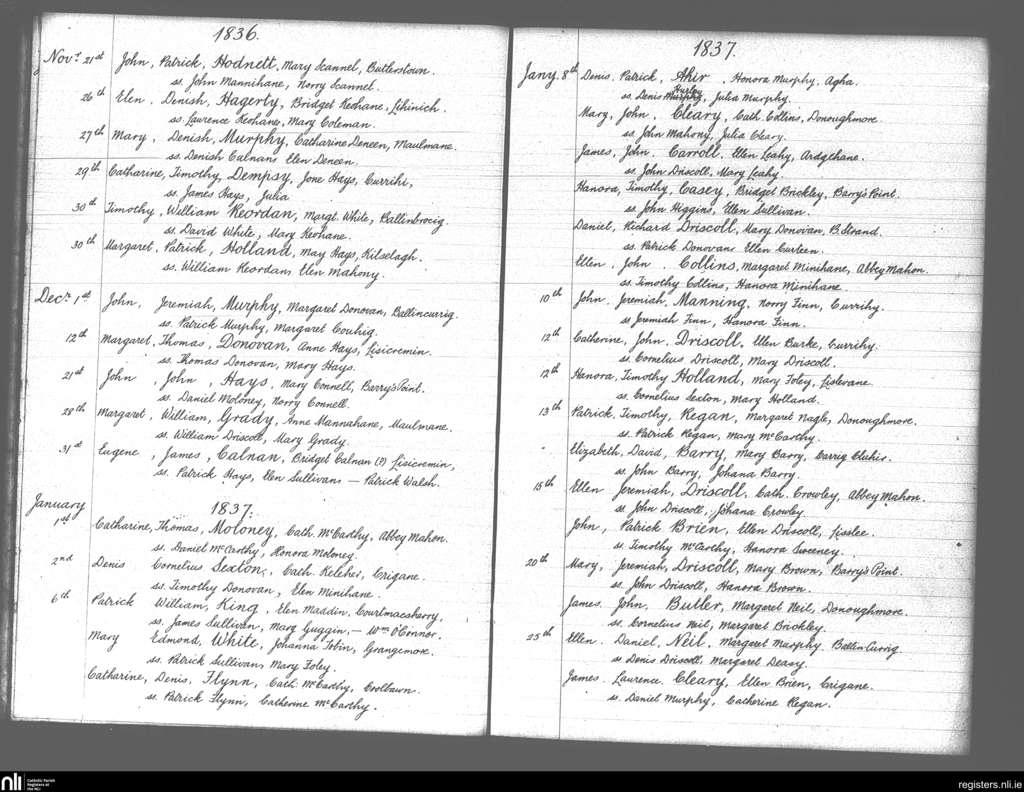 1836.
Novr 21st John, Patrick, Hodnett, Mary Scannel, Butlerstown.
ss. John Mannihane, Norry Scannel.
26th Elen. Denish, Hagerty, Bridget Keohane, Lihinich.
ss. Lawrence Keohane, Mary Coleman.
27th Mary, Denish, Murphy, Catharine Deneen, Maulmane.
ss. Denish Calnans Elen Deneen.
29th Catharine, Timothy, Dempsy, Jone Hays, Currihi,
ss. James Hays, Julia
30th Timothy, William Reordan, Margt. White, Ballinbrocig.
ss. David White, Mary Keohane.
30th Margaret, Patrick, Holland, May Hays, Kilselagh.
ss. William Reordan, Elen Mahony.
Decr. 1st. John, Jeremiah, Murphy, Margaret Donovan, Ballincurig.
ss. Patrick Murphy, Margaret Couhig.
12th Margaret, Thomas, Donovan, Anne Hays, Lisicremin.
ss. Thomas Donovan, Mary Hays.
21st John, John, Hays, Mary Connell, Barry's Point.
ss. Daniel Moloney, Norry Connell.
28th Margaret, William, Grady, Anne Mannahane, Maulmane.
ss. William Driscoll, Mary Grady.
31st Eugene, James, Calnan, Bridget Calnan (?) Lisicremin,
ss. Patrick Hays, Elen Sullivans — Patrick Walsh.
January 1837.
1st Catharine, Thomas, Moloney, Cath. McCarthy, Abbey Mahon.
ss. Daniel McCarthy, Honora Moloney.
2nd Denis Cornelius Sexton, Cath. Keleher, Crigane.
ss. Timothy Donovan, Elen Minihane.
6th Patrick William, King, Elen Maddin, Courtmacsharry,
ss. James Sullivan, Mary Guggin, — Wm. O'Connor.
Mary Edmond, White, Johanna Tobin, Grangemore.
ss. Patrick Sullivan, Mary Foley.
Catharine, Denis, Flynn, Cath. McCarthy, Coolbawn.
ss. Patrick Flynn, Catherine McCarthy.
1837.
Jany. 8th Denis, Patrick, Ahir, Honora Murphy, Agha.
Hurley
ss. Denis Murphy, Julia Murphy.
Mary, John, Cleary, Cath. Collins, Donoughmore.
ss. John Mahony, Julia Cleary.
James, John. Carroll, Ellen Leahy, Ardgehane.
ss. John Driscoll, Mary Leahy.
Hanora, Timothy, Casey, Bridget Brickley, Barry's Point.
ss. John Higgins, Ellen Sullivan.
Daniel, Richard Driscoll, Mary Donovan, B. Strand.
ss. Patrick Donovan Ellen Curteen.
Ellen, John. Collins, Margaret Minihane, Abbey Mahon.
ss. Timothy Collins, Hanora Minihane.
10th John. Jeremiah, Manning, Norry Finn, Currihy.
ss Jeremiah Finn, Hanora Finn.
12th Catherine, John, Driscoll, Ellen Burke, Currihy.
ss. Cornelius Driscoll, Mary Driscoll.
12th Hanora, Timothy Holland, Mary Foley, Lislevane.
ss. Cornelius Sexton, Mary Holland.
13th Patrick, Timothy, Regan, Margaret Nagle, Donoughmore.
ss. Patrick Regan, Mary McCarthy.
" Elizabeth, David, Barry, Mary Barry, Carrig Cluhir.
ss. John Barry, Johana Barry.
15th Ellen Jeremiah, Driscoll, Cath. Crowley, Abbey Mahon.
ss. John Driscoll, Johana Crowley.
John, Patrick Brien, Ellen Driscoll, Lisslee.
ss. Timothy McCarthy, Hanora Sweeney.
20th Mary, Jeremiah, Driscoll, Mary Brown, Barry's Point.
ss. John Driscoll, Hanora Brown.
James. John, Butler, Margaret Neil, Donoughmore.
ss. Cornelius Neil, Margaret Brickley.
25th Ellen. Daniel, Neil, Margaret Murphy Ballin Currig
ss Denis Driscoll, Margaret Deasy.
James. Laurence, Cleary, Ellen Brien, Crigane.
ss. Daniel Murphy, Catherine Regan.
nli Catholic Parish
Registers at
the NLI
registers.nli.ie